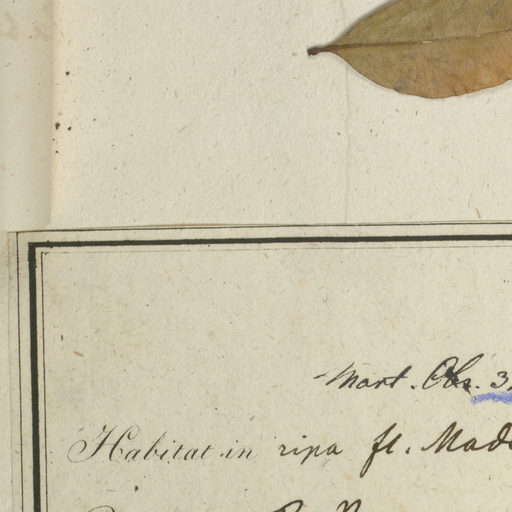 Mart. Obs. 3
Habitat in ripa fl. Mad